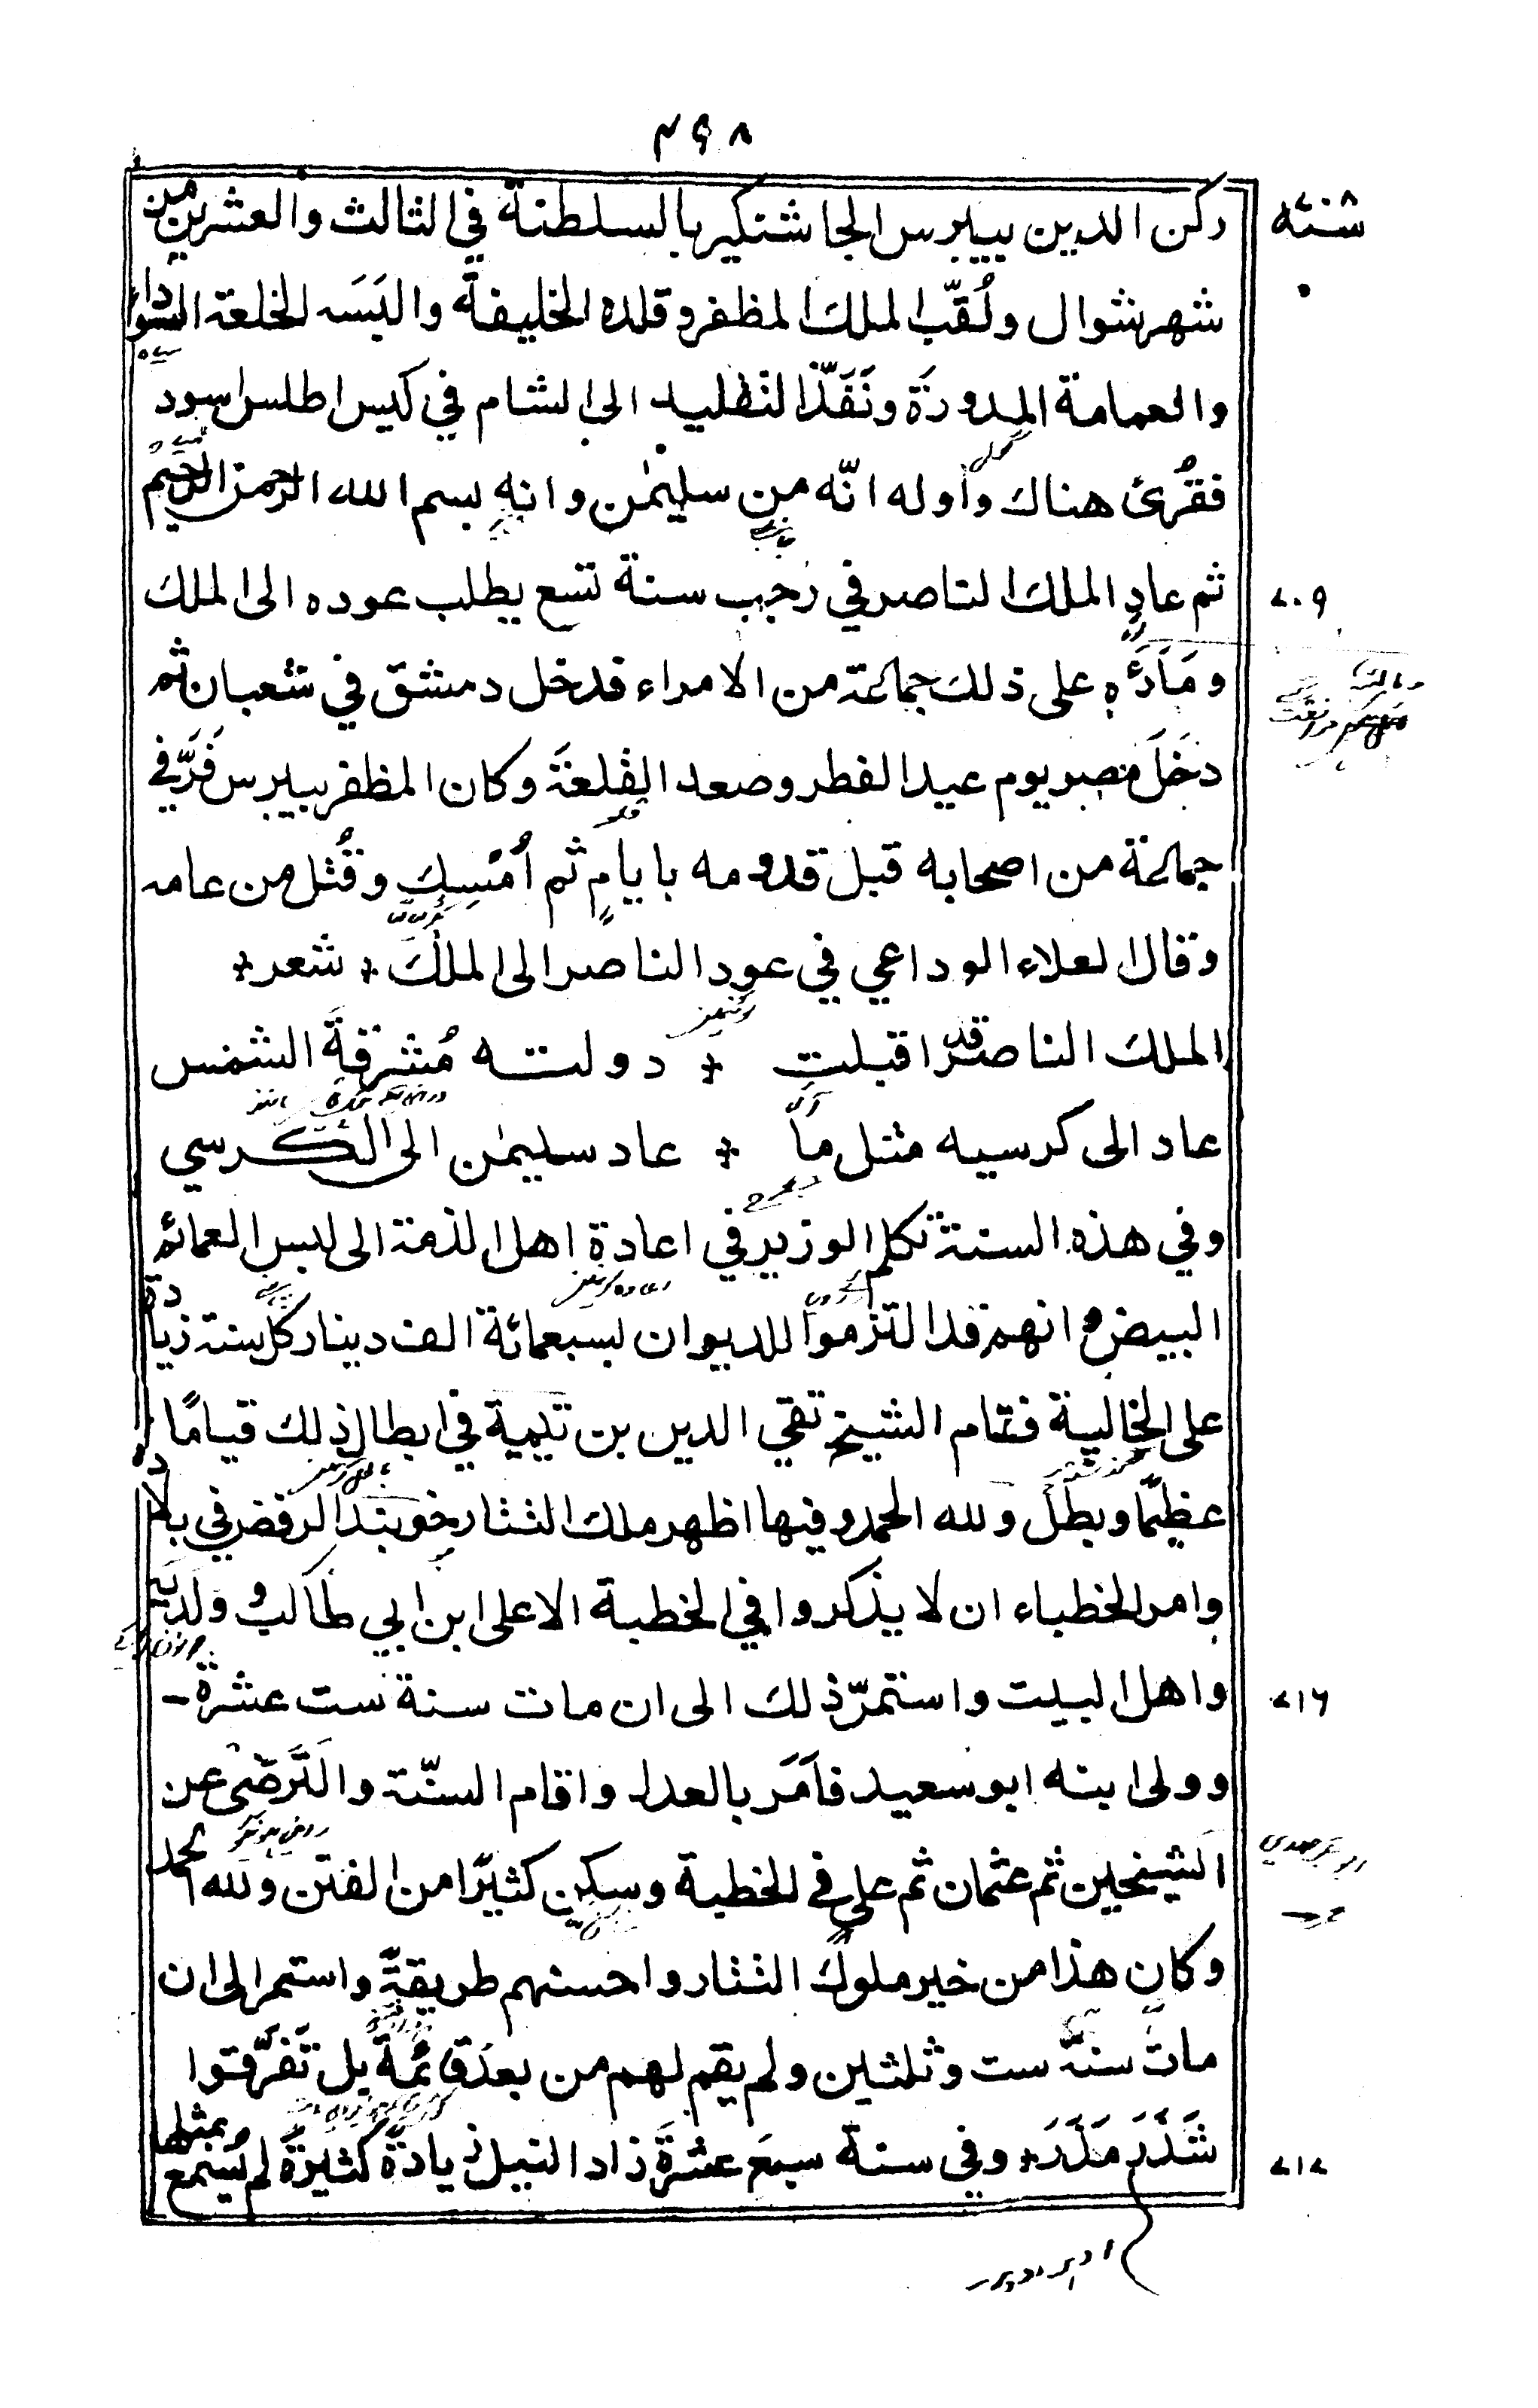 ۴۹۸
ركن الدين بيبرس الجاشنكير بالسلطنة في الثالث والعشرين من
شهر شوال ولُقّب الملك المظفر وقلده الخليفة والبَسَه الخلعة السوداء
والعمامة المدورَة ونَفَّذ التقليد الى الشام في كيس اطلس اسود
فقُرئ هناك واوله انّه من سليمٰن وانه بسم الله الرحمن الرحيم
ثم عاد الملك الناصر في رجب سنة تسع يطلب عوده الى الملك
۷۰۹
ومَالَأَه على ذلك جماعة من الامراء فدخل دمشق في شعبان ثم
دخَلَ مصر يوم عيد الفطر وصعد القلعَة وكان المظفر بيبرس فَرَّ في
جماعة من اصحابه قبل قدومه بايام ثم اُمْسِك وقُتل من عامه
وقال العلاء الوداعي في عود الناصر الى الملك * شعر *
الملك الناصر قد اقبلت * دولته مُشرقةَ الشمس
عاد الى كرسيه مثل ما * عاد سليمٰن الى الكرسي
وفي هذه السنة تكلم الوزير في اعادة اهل الذمة الى لبس العمائم
البيض وانهم قد التزموا للديوان بسبعمائة الف دينار كل سنة زيادة
على الجالية فقام الشيخ تقي الدين بن تيمية في ابطال ذلك قيامًا
عظيمًا وبطل ولله الحمد وفيها اظهر ملك التتار خوبندا الرفض في بلاده
وامر الخطباء ان لا يذكروا في الخطبة الا على ابن ابي طالب وولديه
واهل البيت واستمرّ ذلك الى ان مات سنة ست عشرة –
۷۱۶
وولى ابنه ابو سعيد فاَمَر بالعدل واقام السنّة والتَّرضّي عن
الشيخين ثم عثمان ثم علي في الخطبة وسكن كثيرًا من الفتن ولله الحمد
وكان هذا من خير ملوك التتار واحسنهم طريقةً واستمر الى ان
مات سنة ست وثلثين ولم يقم لهم من بعده قائمة بل تَفَرَّقوا
شَذَرَ مَذَرَ * وفي سنة سبعَ عشرةَ زاد النيل زيادةً كثيرةً لم يُسْمع بمثلها
۷۱۷